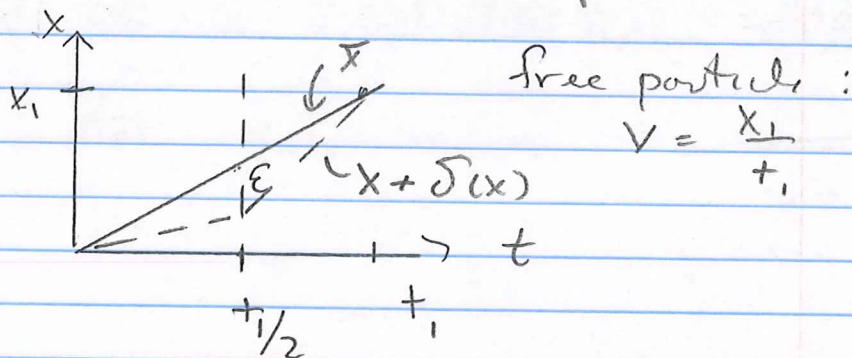 x
x̄
free particle :
x₁
V = x₁/t₁
ε
x + δ(x)
t
t₁/2
t₁